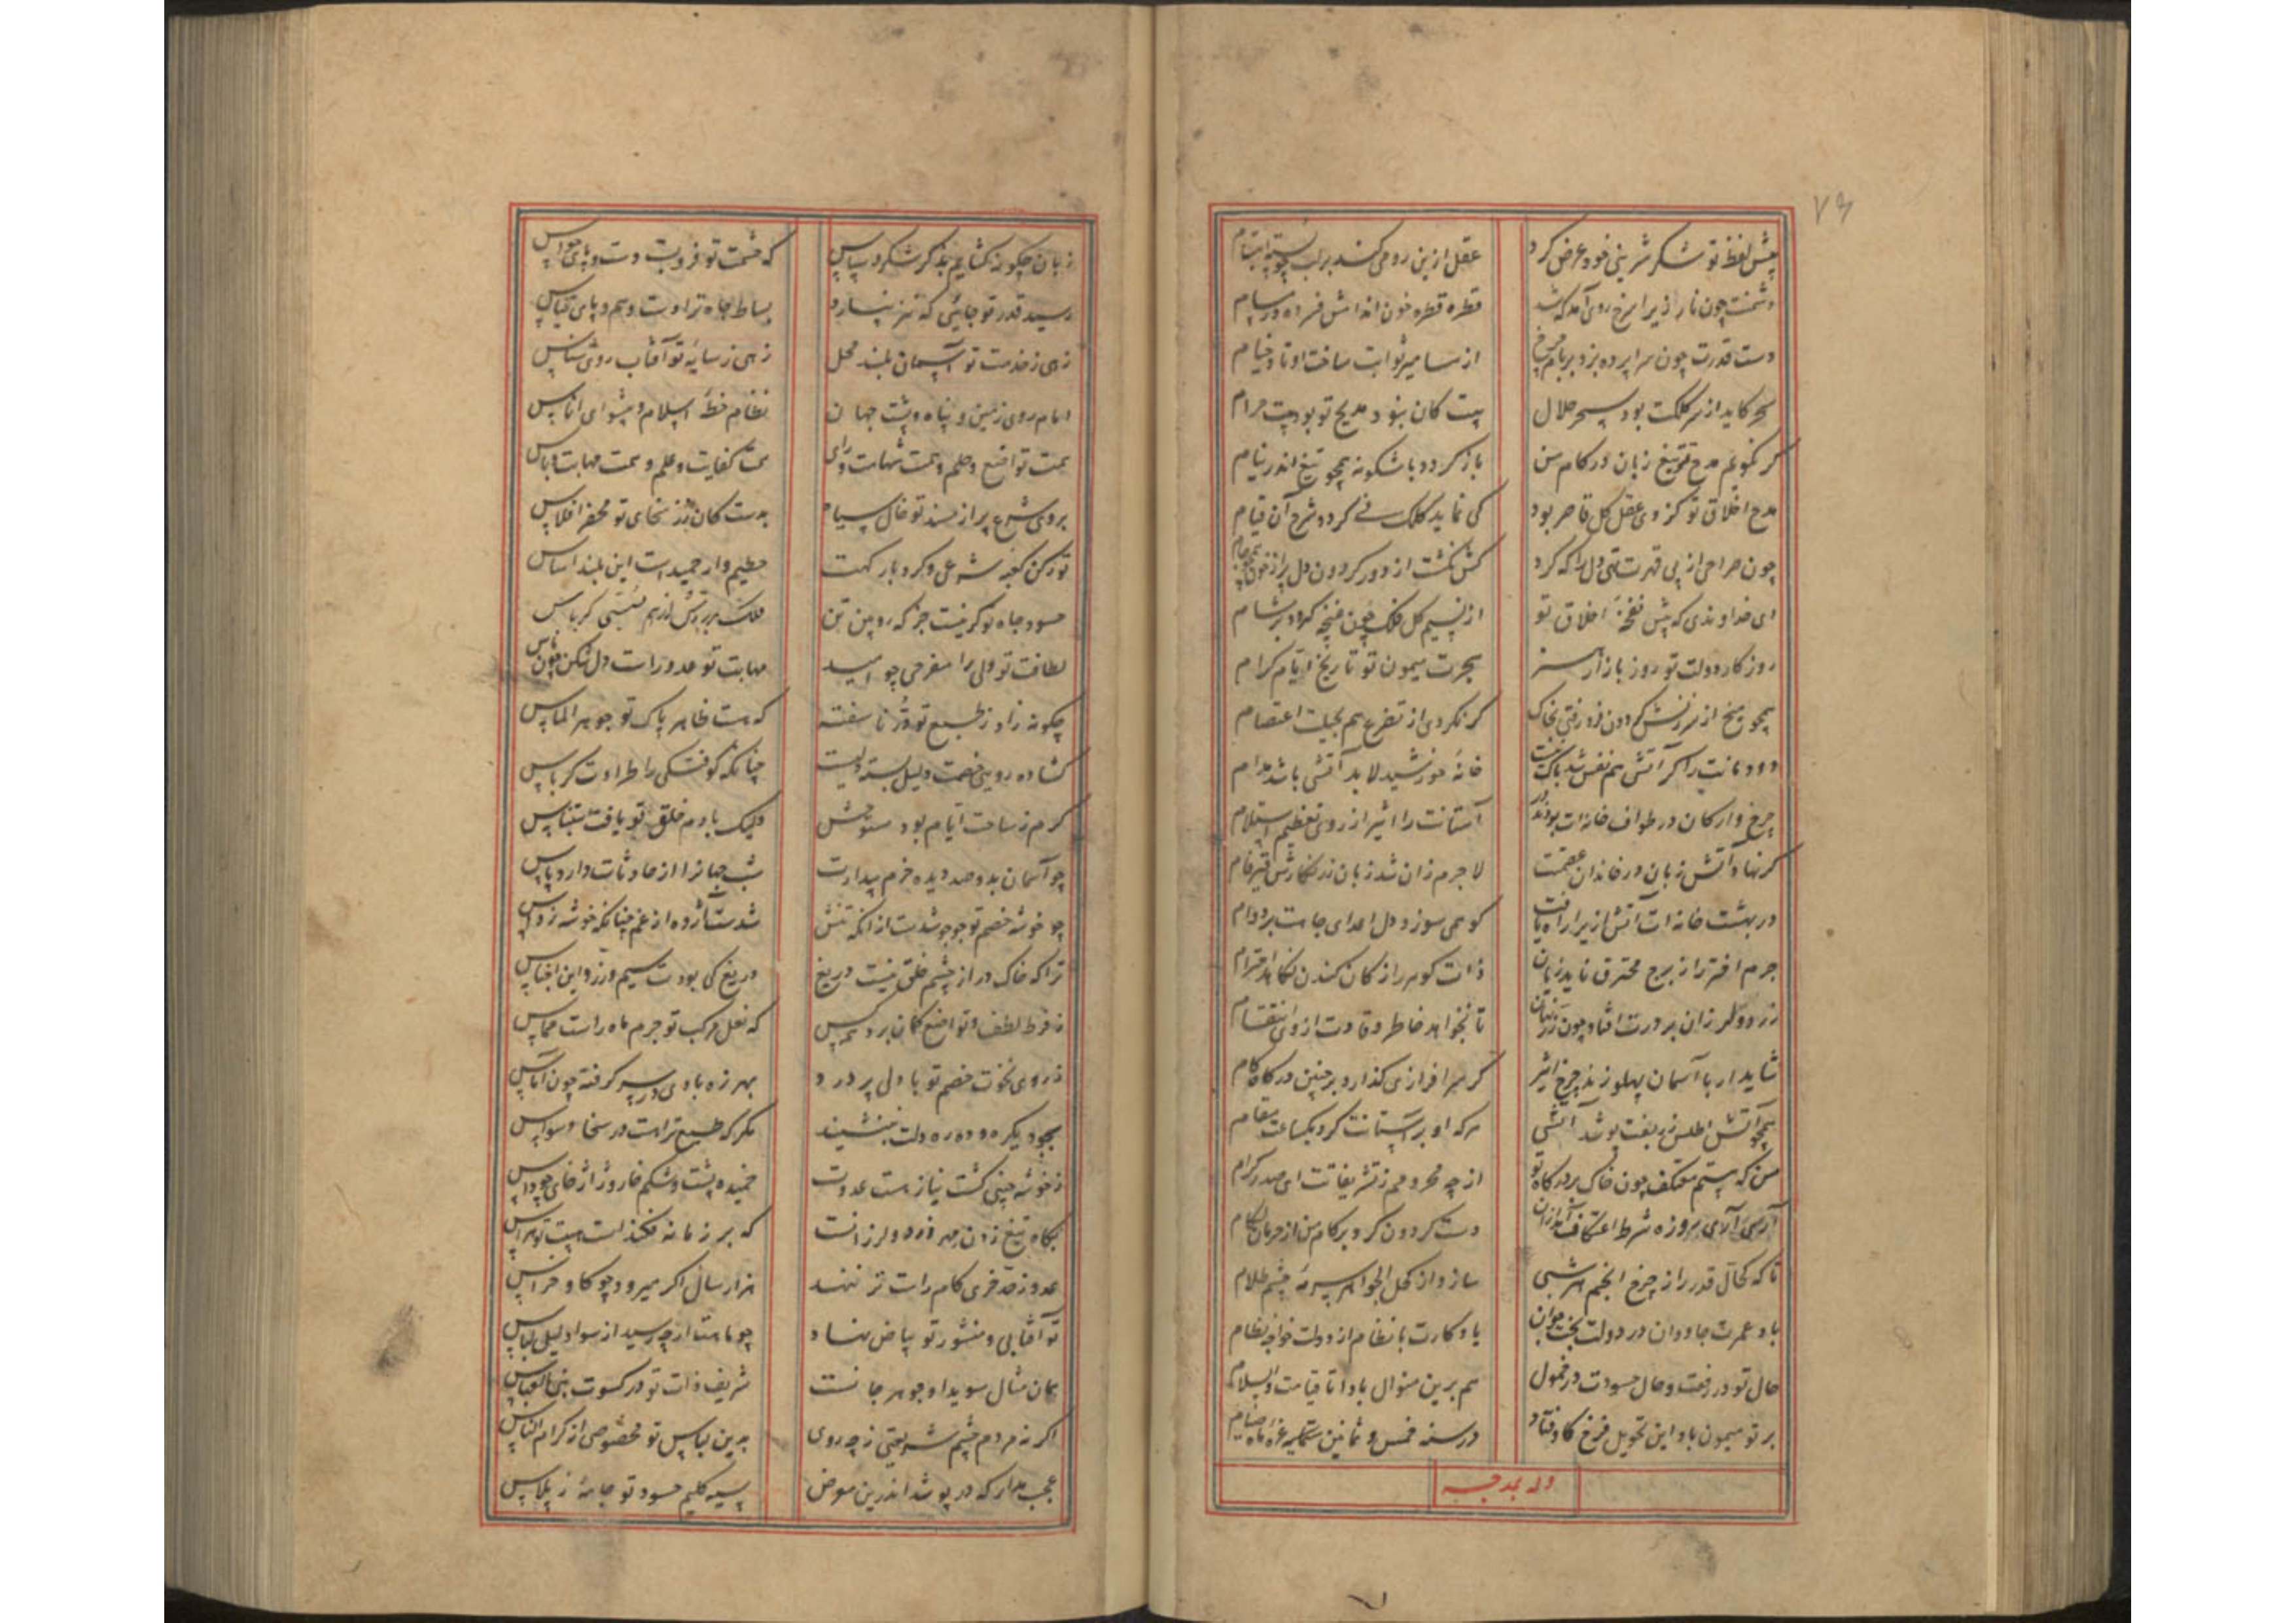 ۷۹
پیش لفظ تو شکر شیرینی خود عرض کرد
عقل ازین رو می کند بر لب
دشمنت چون نار زیرا سرخ روی آمد که شد
قطره قطره خون اندامش فسرده در مسام
دست قدرت چون سراپرده بزد بر بام چرخ
از مسامیر ثوابت ساخت اوتاد خیام
سحر کاید از سر کلکت بود سحر حلال
بیت کان نبود مدیح تو بود بیت حرام
گر نگویم مدح تو تیغ زبان در کام من
باز گردد باشکونه همچو تیغ اندر نیام
مدح اخلاق تو کز وی عقل کل قاصر بود
کی نماید کلک نی کردو شرح آن قیام
چون صراحی از پی قهرت تهی دل را که کرد
کش نگشت از دور گردون دل پر از خون همچو جام
ای خداوندی که پیش نفحهٔ اخلاق تو
از نسیم گل فلک چون غنچه گیرد بر مشام
روزگار دولت تو روز بازار هنر
هجرت میمون تو تاریخ ایام کرام
همچو میخ از سرزنش گردون فرو رفتی بخاک
گر نکردی از تضرع هم بحبلت اعتصام
دودمانت را گر آتش هم نفس شد باک نیست
خانهٔ خورشید لابد آتشی باشد مدام
چرخ و ارکان در طواف خانه ات بودند
آستانت را اثیر از روی تعظیم استلام
گر نهاد آتش زبان در خاندان عصمتت
لاجرم زان شد زبان زرنگارش قیرفام
در بهشت خانه ات آتش ازیرا راه یافت
کو همی سوزد دل اعدای جاهت بر دوام
جرم اختر را ز برج محترق ناید زیان
ذات گوهر را ز کان کندن نکاهد احترام
زرد و لرزان بر درت افتاد چون
تا نخواهد خاطر وقادت از وی انتقام
شاید ار با آسمان پهلو زند چرخ اثیر
گر سرافرازی گذارد بر چنین درگاه گام
همچو آتش اطلس زربفت پوشد آتشی
هر که او بر آستانت کرد یکساعت مقام
من که هستم معتکف چون خاک بر درگاه تو
از چه محرومم ز تشریفات ای صدر کرام
آری آری روزه شرط اعتکاف آمد ازان
دست گردون کرد بر کام من از حرمان لگام
تا که کحال قدر از چرخ انجم هر شبی
سازد از کحل الجواهر سرمهٔ چشم ظلام
باد عمرت جاودان در دولت بخت جوان
باد کارت با نظام از دولت خواجه نظام
حال تو در رفعت و حال حسودت در خمول
هم برین منوال بادا تا قیامت والسلام
بر تو میمون باد این تحویل فرخ کاوفتاد
در سنه خمس و ثمانین ستمایه غره ماه صیام
وله یمدحه
زبان چگونه گشایم بذکر شکر و سپاس
که حشمت تو فرو بست دست و پای حواس
رسید قدر تو جایی که نیز نسپارد
بساط جاه ترا دست وهم و پای قیاس
زهی ز خدمت تو آسمان بلند محل
زهی ز سایهٔ تو آفتاب روی شناس
امام روی زمین و پناه و پشت جهان
نظام خطهٔ اسلام و پیشوای اناس
سمت تواضع و حلم و سمت شهامت و رای
سمت کفایت و علم و سمت مهابت و باس
بروی شرع بر از مسند تو خال سیاه
بدست کان زر سخای تو محضر افلاس
تو رکن کعبهٔ شرعی و گرد بارگهت
حطیم وار خمیدست این بلند اساس
حسود جاه تو گر نیست جز که رویین تن
لطافت تو ولی را مفرحی چو امید
مهابت تو عدو راست دل شکن چون یاس
چگونه زاد ز طبع تو در ناسفته
که هست خاطر پاک تو جوهر الماس
گشاده رویی خصمت دلیل بسته دلیست
چنانکه کوفتگی را طراوت کرباس
کرم ز ساحت ایام بود مستوحش
ولیک با دم خلق تو یافت استیناس
چو آسمان بدوصد دیده حزم بیدارت
شب جهانرا از حادثات دارد پاس
چو خوشه خصم تو جو جو شدست ازانکه تنش
شدست آژده از غم چنانکه خوشه ز داس
ترا که خاک در از چشم خلق نیست دریغ
دریغ کی بودت سیم و زر و این اجناس
ز فرط لطف و تواضع گمان برد هر کس
که نعل مرکب تو جرم ماه راست مماس
ز روی نخوت خصم تو با دلی پر درد
بهرزه بادی در سر گرفته چون آماس
بجود یکره و ده ره دلت بننشیند
مگر که طبع تراست در سخا وسواس
ز خوشه چینی کشت نیاز هست عدوت
خمیده پشت و شکم خار و ژاژخای چو داس
بگاه تیغ زدن مهر زرد و لرزانست
که بر زمانه فکندست هیبت تو هراس
عدو ز صد خری گام راست تر ننهد
هزار سال اگر میرود چو گاو خراس
تو آفتابی و منشور تو بیاض نهاد
چو ماهت از چه رسید از سواد لیل لباس
بسان مثال سویدا و جوهر جانست
شریف ذات تو در کسوت بنی العباس
اگر نه مردم چشم شریعتی ز چه روی
بدین لباس تو مخصوصی از کرام الناس
عجب مدار که در پوشد اندرین معرض
سیه گلیم حسود تو جامهٔ ز پلاس